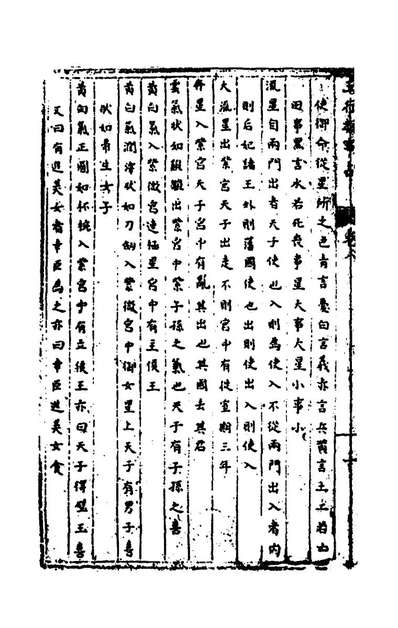 使御命從星所之色青言憂白言義赤言兵黃言土工若山
田事黑言水若死喪事星大事大星小事小
流星自兩門出者天子使也入則爲使入不從兩門出入者內
則后妃諸王外則蕃國使也出則使出入則使入
大流星出紫宮天子出走不則宮中有徙宜期三年
奔星入紫宮天子宮中有亂其出也其國去其君
雲氣狀如出紫宮中紫子孫之氣也天子有子孫之喜
黃白氣入紫微宮連極星宮中有立後王
黃白氣潤澤狀如刀劍入紫微宮中御女星上天子有男子喜
狀如帚生女子
黃白氣正圓如杯椀入紫宮中有立後王亦曰天子得璧玉喜
又曰有進美女者幸臣爲之亦曰幸臣進美女食